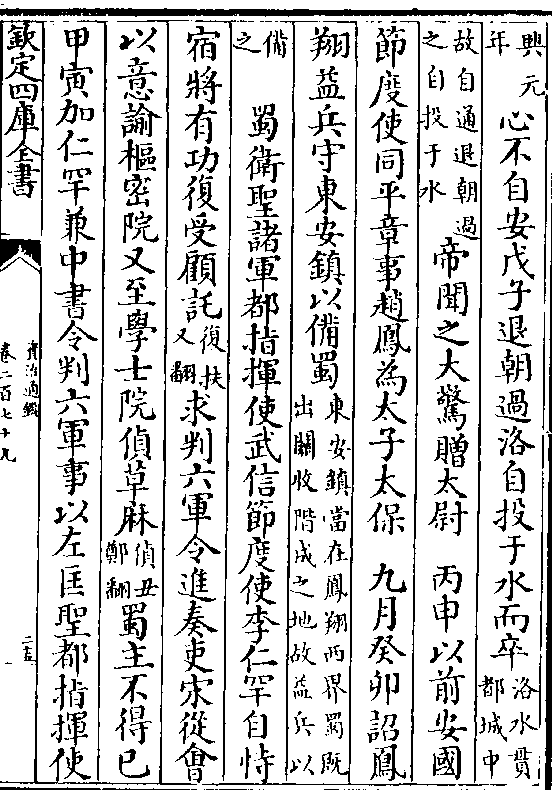 興元年心不自安戊子退朝過洛自投于水而卒洛水貫都城中
故自通退朝過之自投于水帝聞之大驚贈太尉　丙申以前安國
節度使同平章事趙鳳為太子太保　九月癸卯詔鳳
翔益兵守東安鎮以備蜀東安鎮當在鳳翔西界蜀既出關收階成之地故益兵以
備之　蜀衛聖諸軍都指揮使武信節度使李仁罕自恃
宿將有功復受顧託復扶又翻求判六軍令進奏吏宋從㑹
以意諭樞密院又至學士院偵草麻偵丑鄭翻蜀主不得已
甲寅加仁罕兼中書令判六軍事以左匡聖都指揮使
欽定四庫全書
資治通鑑
卷二百七十九
二十五